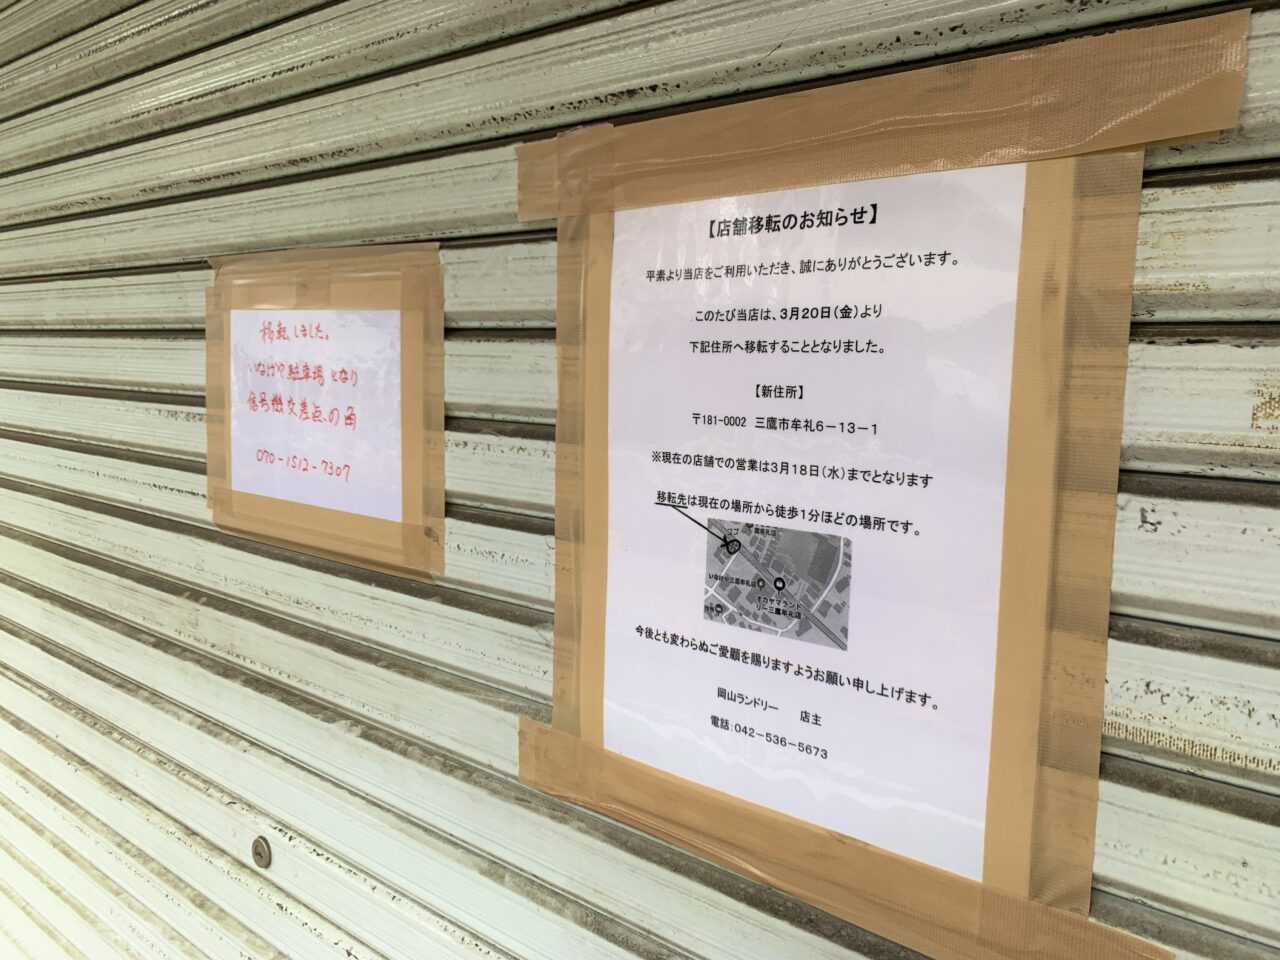 移転しました。
いなげや駐車場となり
信号機交差点の角
070-1512-7307
【店舗移転のお知らせ】
平素より当店をご利用いただき、誠にありがとうございます。
このたび当店は、3月20日(金)より
下記住所へ移転することとなりました。
【新住所】
〒181-0002 三鷹市牟礼6-13-1
※現在の店舗での営業は3月18日(水)までとなります
移転先は現在の場所から徒歩1分ほどの場所です。
ココ
いなげや三鷹牟礼店
オカヤマランド
リー三鷹牟礼店
今後とも変わらぬご愛顧を賜りますようお願い申し上げます。
岡山ランドリー 店主
電話:042-536-5673